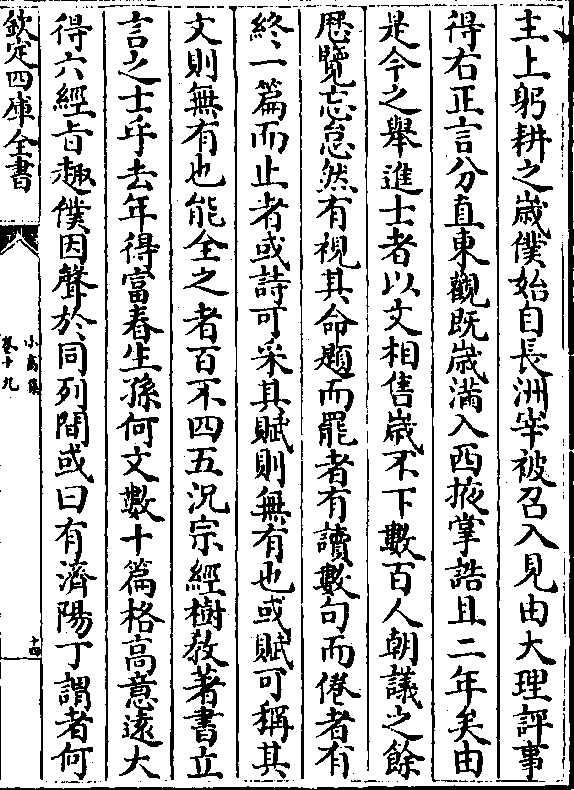 主上躬耕之嵗僕始自長洲宰被召入見由大理評事
得右正言分直東觀既嵗滿入西掖掌誥且二年矣由
是今之舉進士者以文相售嵗不下數百人朝議之餘
歴覽忘怠然有視其命題而罷者有讀數句而倦者有
終一篇而止者或詩可采其賦則無有也或賦可稱其
文則無有也能全之者百不四五況宗經樹教著書立
言之士乎去年得富春生孫何文數十篇格高意逺大
得六經旨趣僕因聲於同列間或曰有濟陽丁謂者何
欽定四庫全書
小畜集
卷十九
十四